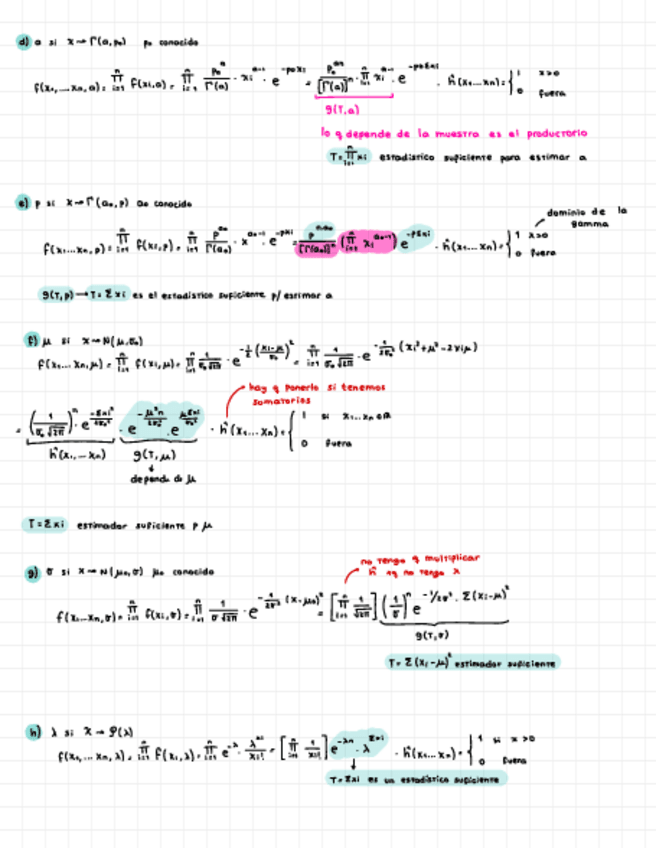 d) a si x→Γ(a,p₀) p₀ conocido
f(x₁,...xₙ,a)= ∏ᵢ₌₁ⁿ f(xᵢ,a) = ∏ᵢ₌₁ⁿ p₀ᵃ/Γ(a) · xᵢᵃ⁻¹ · e^(-p₀xᵢ) = p₀ᵃⁿ/[Γ(a)]ⁿ · ∏ᵢ₌₁ⁿ xᵢᵃ⁻¹ · e^(-p₀Σxᵢ) · ĥ(x₁...xₙ)= { 1 x>0
0 fuera
g(T,a)
lo q depende de la muestra es el productorio
T=∏ᵢ₌₁ⁿ xᵢ estadístico suficiente para estimar a
e) p si x→Γ(a₀,p) a₀ conocido
dominio de la
gamma
f(x₁...xₙ,p)= ∏ᵢ₌₁ⁿ f(xᵢ,p) = ∏ᵢ₌₁ⁿ p^(a₀)/Γ(a₀) · x^(a₀-1) · e^(-pxᵢ) = p^(na₀)/[Γ(a₀)]ⁿ (∏ᵢ₌₁ⁿ xᵢ^(a₀-1)) e^(-pΣxᵢ) · ĥ(x₁...xₙ)= { 1 x>0
0 fuera
g(T,p) → T=Σxᵢ es el estadístico suficiente p/ estimar a
f) μ si x→N(μ,σ₀)
f(x₁...xₙ,μ)= ∏ᵢ₌₁ⁿ f(xᵢ,μ) = ∏ᵢ₌₁ⁿ 1/(σ₀√2π) · e^(-1/2 ((xᵢ-μ)/σ₀)²) = ∏ᵢ₌₁ⁿ 1/(σ₀√2π) · e^(-1/2σ₀² (xᵢ²+μ²-2xᵢμ))
hay q ponerlo si tenemos
sumatorios
= (1/(σ₀√2π))ⁿ · e^(-Σxᵢ²/2σ₀²) · e^(-μ²n/2σ₀²) · e^(μΣxᵢ/σ₀²) · ĥ(x₁...xₙ)= { 1 si x₁...xₙ∈R
0 fuera
ĥ(x₁,...xₙ) g(T,μ)
depende de μ
T=Σxᵢ estimador suficiente p μ
no tengo q multiplicar
ĥ xq no tengo x
g) σ si x→N(μ₀,σ) μ₀ conocido
f(x₁...xₙ,σ)= ∏ᵢ₌₁ⁿ f(xᵢ,σ) = ∏ᵢ₌₁ⁿ 1/(σ√2π) · e^(-1/2σ² (x-μ₀)²) = [∏ᵢ₌₁ⁿ 1/√2π] (1/σ)ⁿ e^(-1/2σ² · Σ(xᵢ-μ)²)
g(T,σ)
T= Σ(xᵢ-μ)² estimador suficiente
h) λ si x→P(λ)
f(x₁,...xₙ,λ)= ∏ᵢ₌₁ⁿ f(xᵢ,λ) = ∏ᵢ₌₁ⁿ e^(-λ) · λ^(xᵢ)/xᵢ! = [∏ᵢ₌₁ⁿ 1/xᵢ!] e^(-λn) · λ^(Σxᵢ) · ĥ(x₁...xₙ)= { 1 si x>0
0 fuera
T=Σxᵢ es un estadístico suficiente